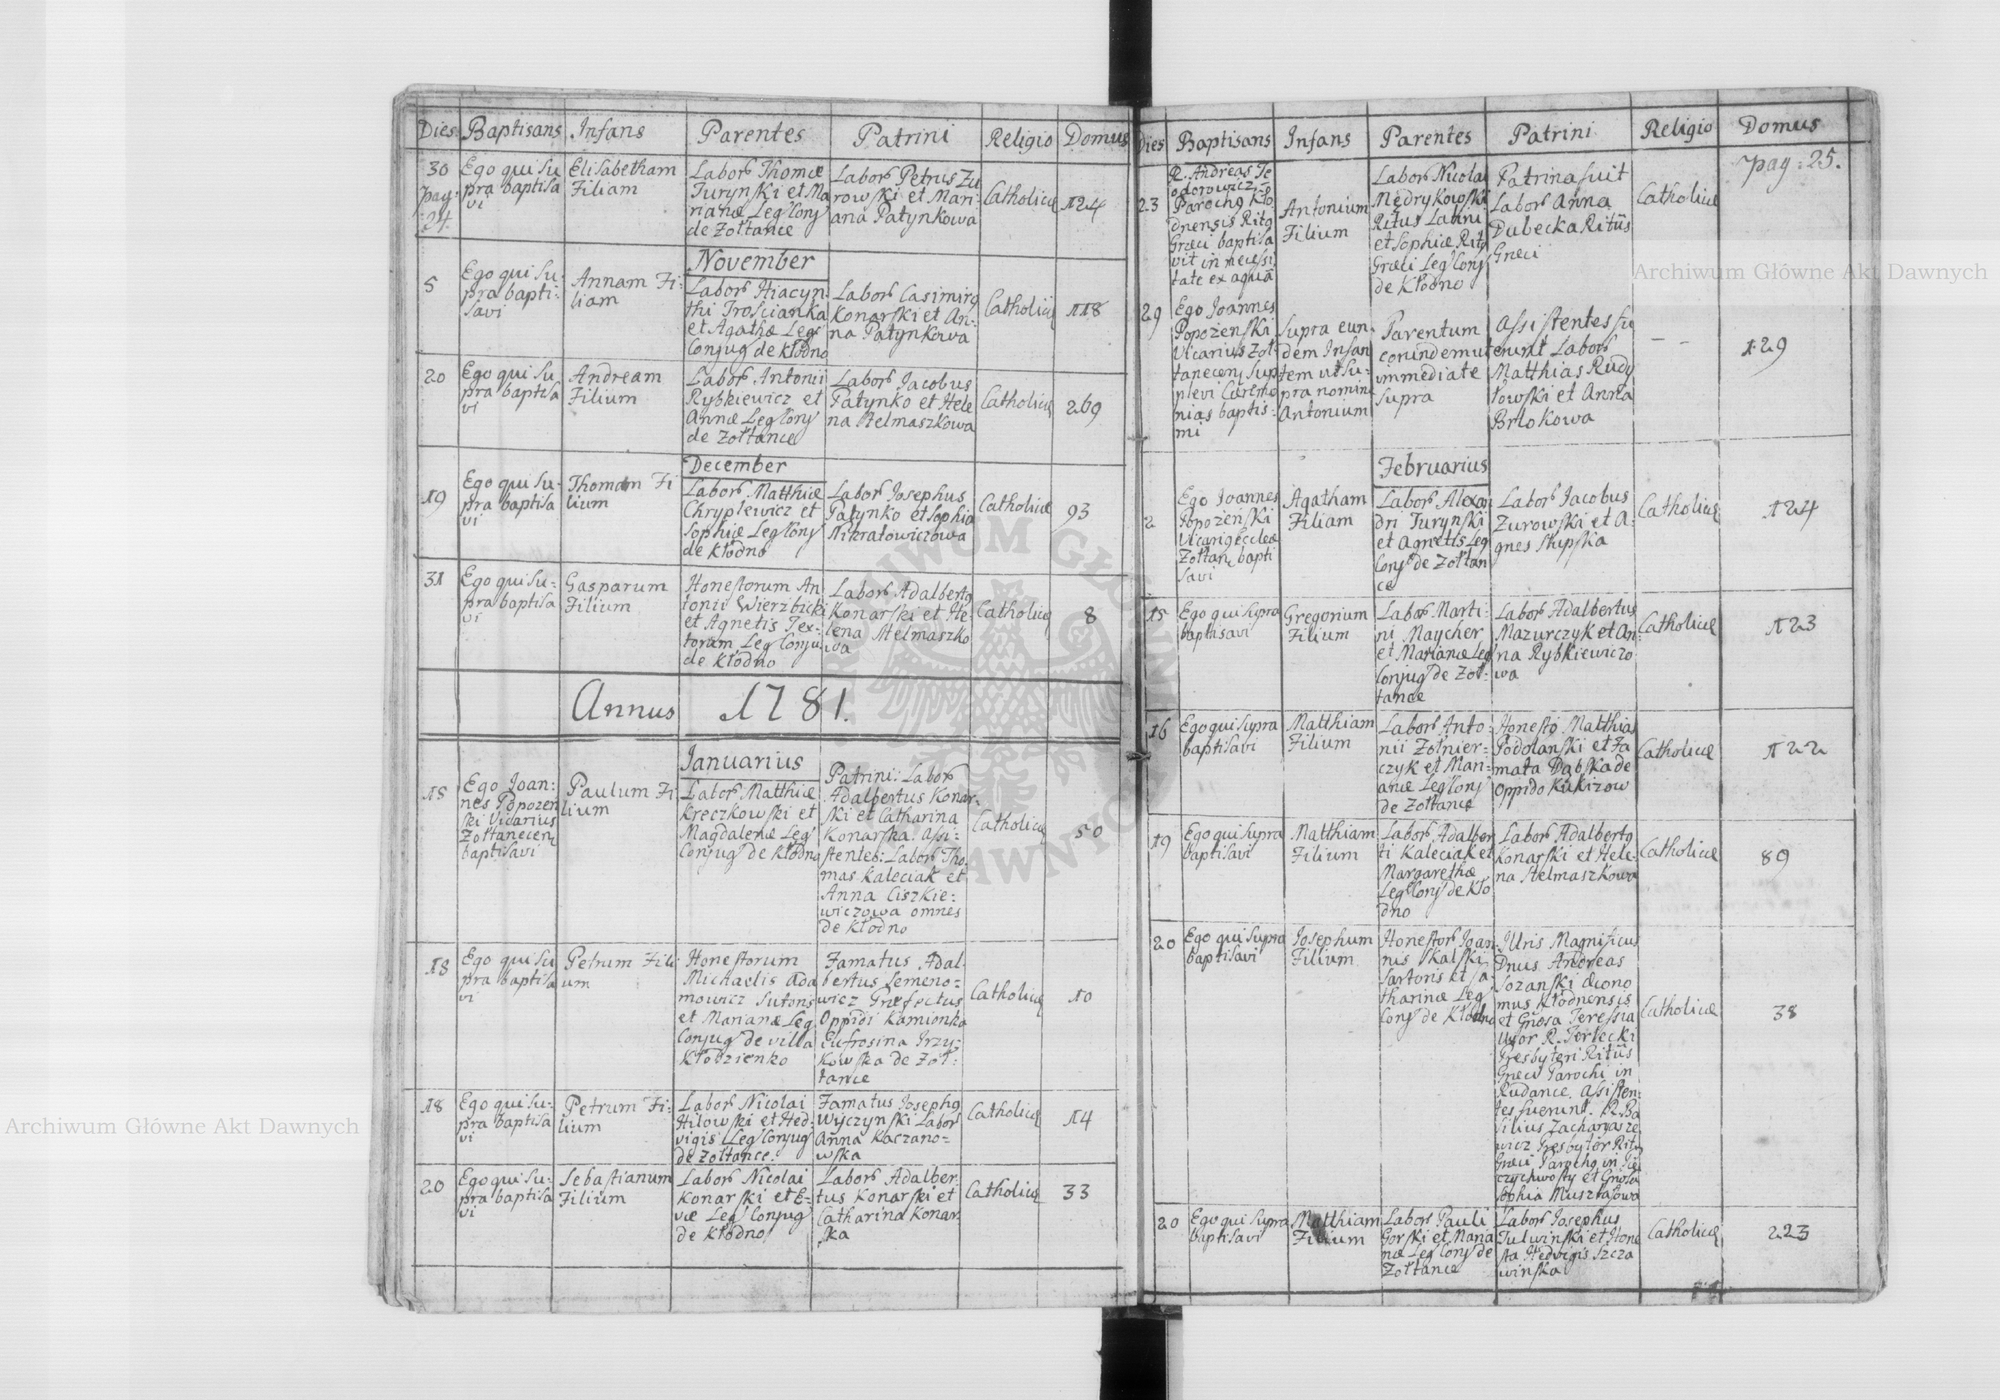 Dies Baptisans Infans Parentes Patrini Religio Domus
30
pag:
24.
Ego qui su
pra baptisa
vi
Elisabetham
Filiam
Labor Thomæ
Turynski et Ma
rianæ Leg Conj
de Zołtance
Labor Petrus Zu
rowski et Mari
ana Patynkowa
Catholicæ
124
November
5
Ego qui su:
pra bapti:
savi
Annam Fi:
liam
Labor Hiacyn
thi Trościanka
et Agathæ Leg
Conjug de Kłodno
Labor Casimirg
Konarski et An:
na Patynkowa
Catholicæ
118
20
Ego qui su
pra baptisa
vi
Andream
Filium
Labor Antonii
Rybkiewicz et
Annæ Leg Conj
de Zołtance
Labor Jacobus
Patynko et Hele
na Stelmaszkowa
Catholicæ
269
December
19
Ego qui su:
pra baptisa
vi
Thomam Fi
lium
Labor Matthiæ
Chryplewicz et
Sophiæ Leg Conj
de Kłodno
Labor Josephus
Patynko et Sophia
Catholicæ
93
31
Ego qui su:
pra baptisa
vi
Gasparum
Filium
Honestorum An
tonii Wierzbicki
et Agnetis Tex:
torum Leg Conju
de Kłodno
Labor Adalbertg
Konarski et He:
lena Stelmaszko
wa
Catholicæ
8
Annus 1781.
Januarius
15
Ego Joan:
nes Popozen
ski Vicarius
Zołtanecen
baptisavi
Paulum Fi
lium
Labor Matthiæ
Kreczkowski et
Magdalenæ Leg
Conjug de Kłodno
Patrini: Labor
Adalbertus Konar:
ski et Catharina
Konarska. Assi:
stentes: Labor Tho
mas Kaleciak et
Anna Ciszkie:
wiczowa omnes
de Kłodno
Catholicæ
50
18
Ego qui su
pra baptisa
vi
Petrum Fili
um
Honestorum
Michaelis Ada
mowicz Sutons
et Marianæ Leg
Conjug de villa
Kłodzienko
Famatus Adal
bertus Semeno:
wicz Præfectus
Oppidi Kamionka
Eufrosina Trzy:
kowska de Zoł:
tance
Catholicæ
10
18
Ego qui su:
pra baptisa
vi
Petrum Fi:
lium
Labor Nicolai
Hilowski et Hed
vigis Leg Conjug
de Zołtance.
Famatus Josephg
Wyczynski Labor
Anna Kaczano:
wska
Catholicæ
14
20
Ego qui su:
pra baptisa
vi
Sebastianum
Filium
Labor Nicolai
Konarski et E:
væ Leg Conjug
de Kłodno
Labor Adalber
tus Konarski et
Catharina Konar
ska
Catholicæ
33
Dies Baptisans Infans Parentes Patrini Religio Domus
pag: 25.
23
R. Andreas Te
odorowicz
Parochg Kło
dnensis Ritg
Græci baptisa
vit in necessi
tate ex aqua
Antonium
Filium
Labor Nicolai
Mędrykowski
Ritus Latini
et Sophiæ Ritg
Græci Leg Conj
de Kłodno
Patrina fuit
Labor Anna
Dubecka Ritûs
Græci
Catholicæ
29
Ego Joannes
Popozenski
Vicarius Zoł:
tanecen Sup
plevi Cæremo
nias baptis:
mi
Supra eun:
dem Infan
tem ut su:
pra nomine
Antonium
Parentum
eorundem ut
immediate
supra
Assistentes fu
erunt Labor
Matthias Rudy
łowski et Anna
Brlokowa
- -
129
Februarius
2
Ego Joannes
Popozeński
Vicarig Eccleæ
Zołtan bapti
savi
Agatham
Filiam
Labor Alexa
dri Turynski
et Agnetis Leg
Conj de Zołtan
ce
Labor Jacobus
Zurowski et A:
gnes Slupska
Catholicæ
124
15
Ego qui supra
baptisavi
Gregorium
Filium
Labor Marti:
ni Maycher
et Marianæ Leg
Conjug de Zoł:
tance
Labor Adalbertus
Mazurczyk et An:
na Rybkiewiczo
wa
Catholicæ
123
16
Ego qui supra
baptisavi
Matthiam
Filium
Labor Anto:
nii Zołnier:
czyk et Mari:
anæ Leg Conj
de Zołtance
Honestg Matthias
Podolanski et Fa
mata Dąbska de
Oppido Kukizow
Catholicæ
122
19
Ego qui supra
baptisavi
Matthiam
Filium
Labor Adalber
ti Kaleciak et
Margarethæ
Leg Conj de Kło
dno
Labor Adalbertg
Konarski et Hele:
na Stelmaszkowa
Catholicæ
89
20
Ego qui supra
baptisavi
Josephum
Filium
Honestor Joan
nis Skalski
Sartoris et Ca:
tharinæ Leg
Conj de Kłodno
Illris Magnificus
Dnus Andreas
Sozanski Œcono
mus Kłodnensis
et Gnosa Teressia
Uxor R. Terlecki
Presbyteri Ritûs
Græci Parochi in
Rudance. Assisten:
tes fuerunt. R. Ba
silius Zacharyasze
wicz Presbyter Rits
Græci Parochg in
et Gnosa
Sophia Muszkasowa
Catholicæ
38
20
Ego qui supra
baptisavi
Matthiam
Filium
Labor Pauli
Gorski et Maria
næ Leg Conj de
Zołtance
Labor Josephus
Tulwinski et Hone
sta Hedvigis Szcza
winska
Catholicæ
223
Archiwum Główne Akt Dawnych
Archiwum Główne Akt Dawnych
ARCHIWUM GŁÓWNE AKT DAWNYCH